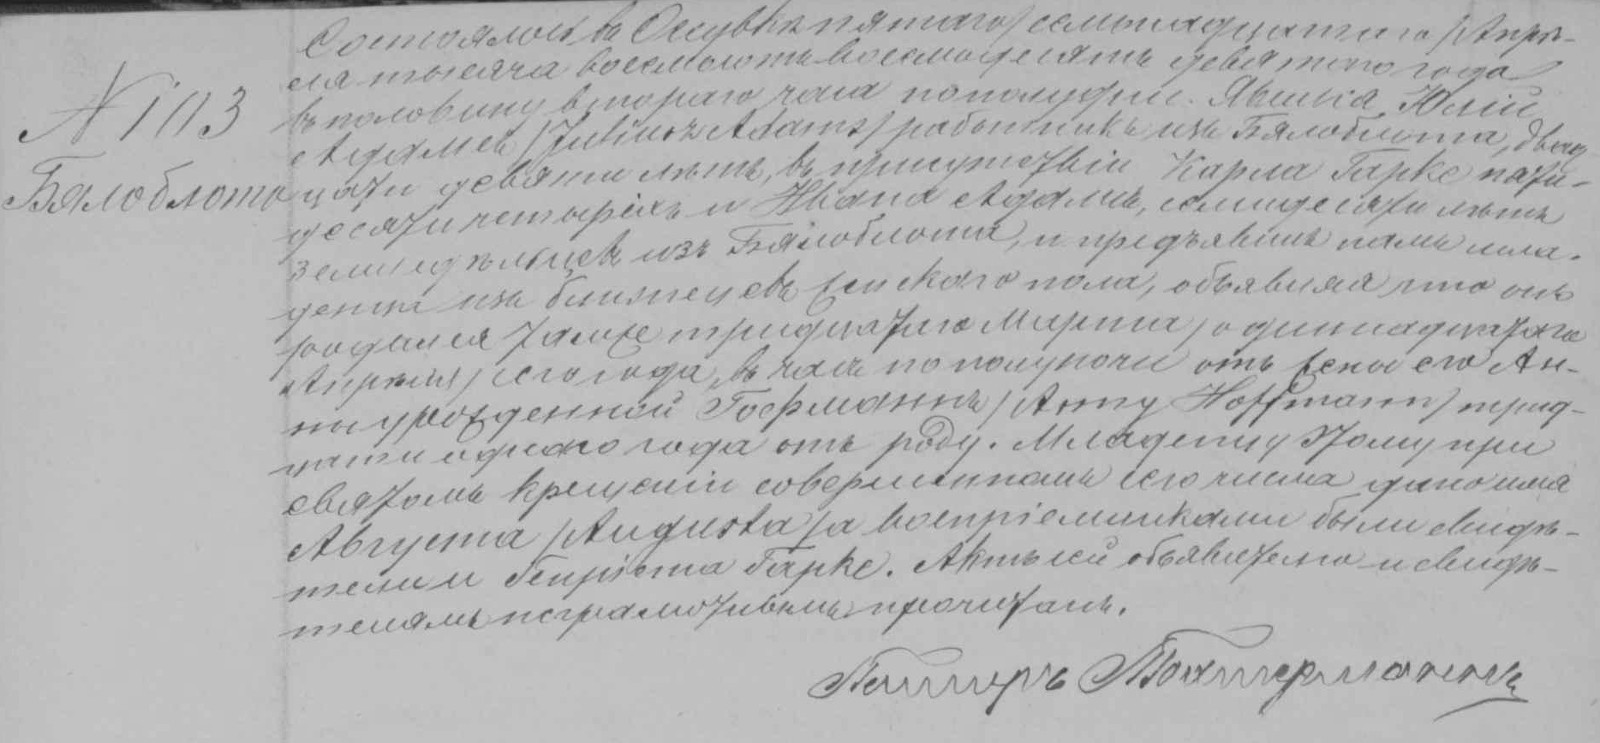 N 103
Бялоблото
Состоялось въ Осувкѣ пятаго /семьнадцатаго/ Апрѣ-
ля тысяча восемьсотъ восемьдесятъ девятаго года
въ половину втораго часа пополудни. Явился Юлій
Адамсъ /Juliusz Adams/ работникъ изъ Бялоблота, двад-
цати девяти лѣтъ, въ присутствіи Карла Гарке пяти-
десяти четырехъ и Ивана Адамсъ, семидесяти лѣтъ
земледѣльцевъ изъ Бялоблота, и предъявилъ намъ мла-
денца изъ близнецевъ женскаго пола, объявляя что онъ
родился тамже тридцатаго Марта /одиннадцатаго
Апрѣля/ сего года, въ часъ пополуночи отъ жены его Ан-
ны урожденной Гофманнъ /Anny Hoffmann/ трид-
цати одного года отъ роду. Младенцу этому при
святомъ крещеніи совершенномъ сего числа дано имя
Августа /Augusta/ а воспріемниками были свидѣ-
тели и Генріета Гарке. Актъ сей объявителю и свидѣ-
телямъ неграмотнымъ прочитанъ.